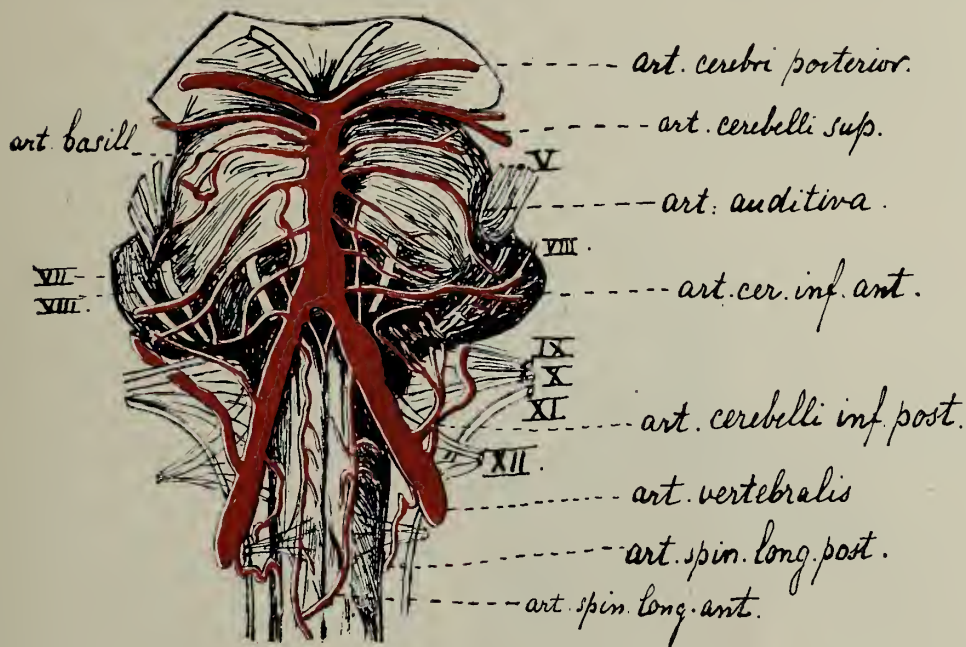 art. cerebri posterior.
art. cerebelli sup.
art. basill
V
art. auditiva.
VIII.
VII
VIII.
art. cer. inf. ant.
IX
X
XI
art. cerebelli inf. post.
XII.
art. vertebralis
art. spin. long. post.
art. spin. long. ant.